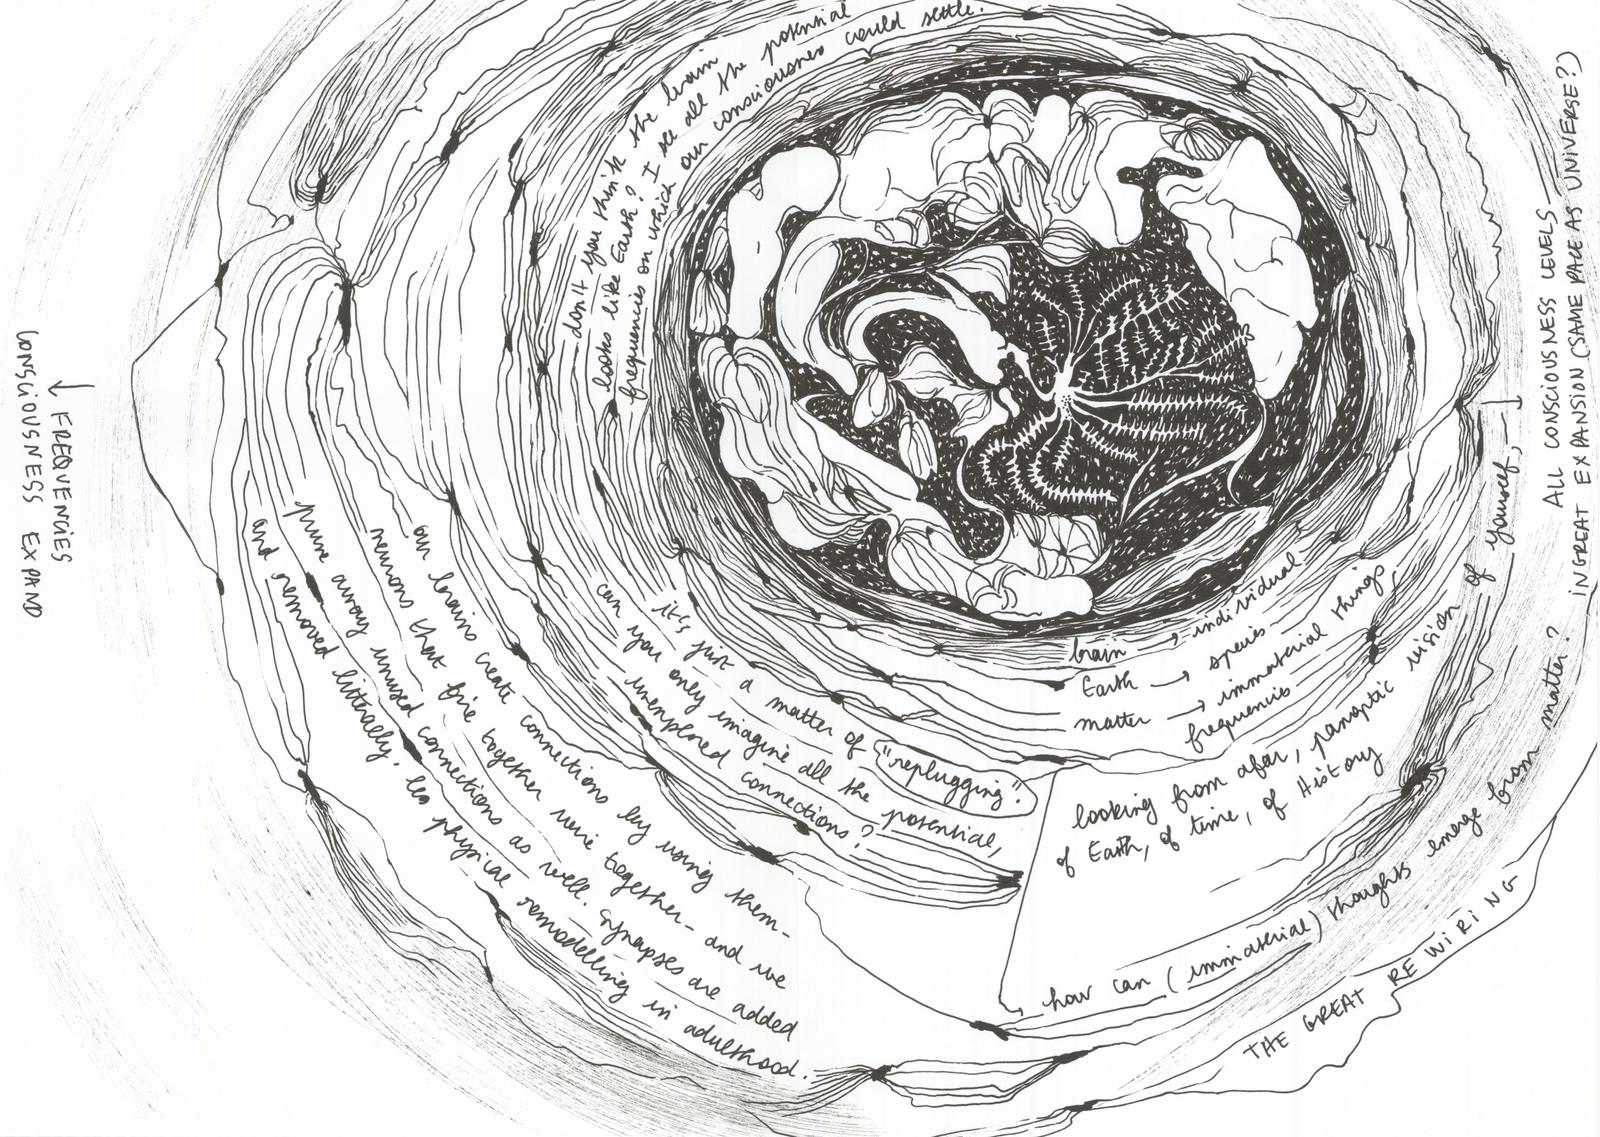 don't you think the brain
looks like Earth? I see all the potential
frequencies on which our consciousness could settle.
ALL CONSCIOUSNESS LEVELS
IN GREAT EXPANSION (SAME PACE AS UNIVERSE?)
↓ FREQUENCIES
CONSCIOUSNESS EXPAND
brain → individual
Earth → species
matter → immaterial things,
frequencies
looking from afar, panoptic vision of yourself,
of Earth, of time, of History
how can (immaterial) thoughts emerge from matter?
THE GREAT REWIRING
it's just a matter of "replugging".
can you only imagine all the potential,
unexplored connections?
our brains create connections by using them-
neurons that fire together wire together- and we
prune away unused connections as well. Synapses are added
and removed literally, les physical remodelling in adulthood.